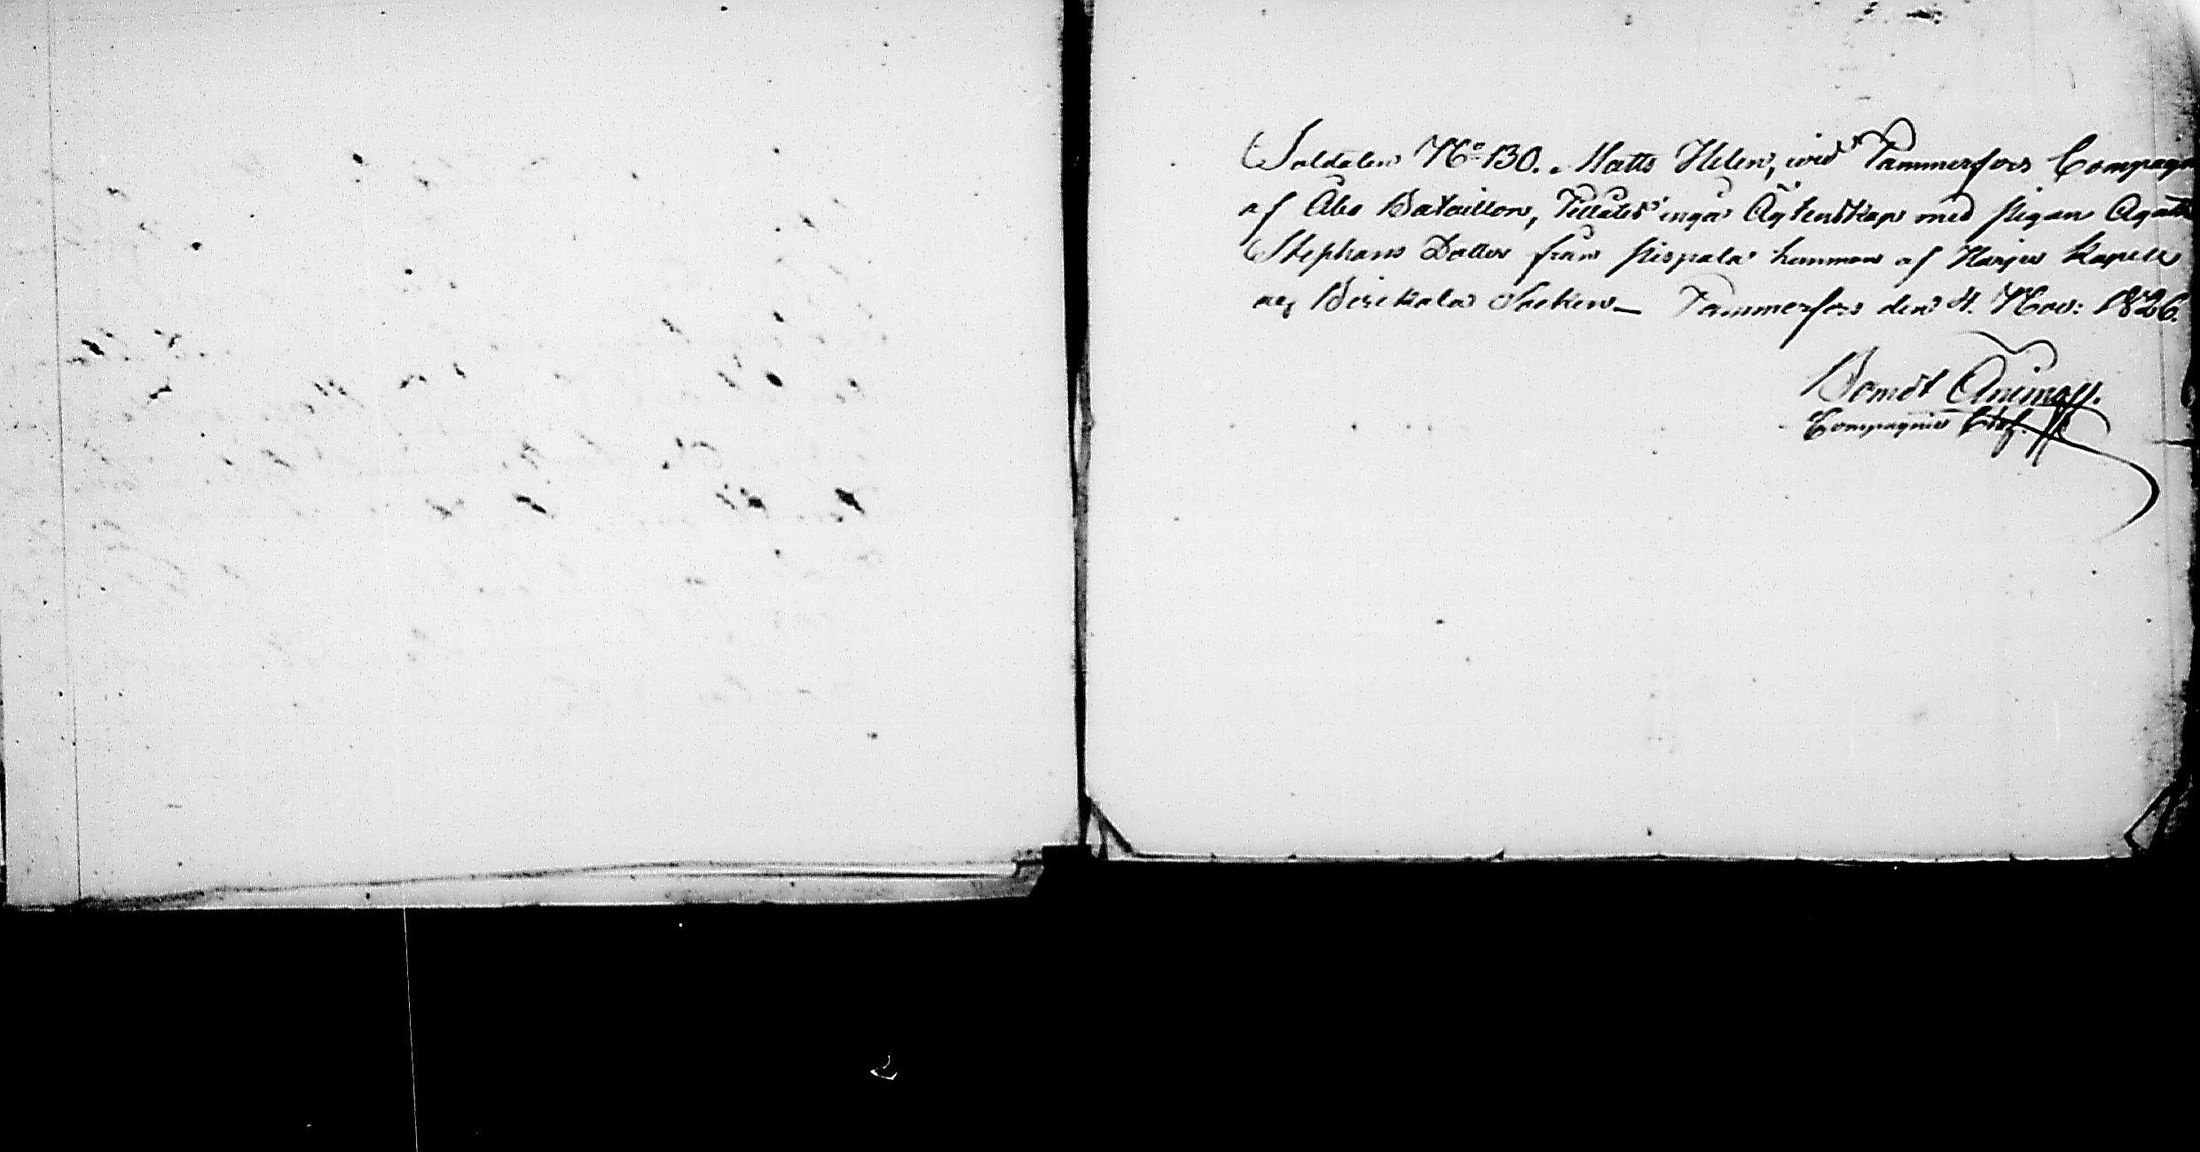 Soldaten No 130. Matts Helen, wid Tammerfors Compagn
af Åbo Bataillon, Tillåtes ingå Ägtenskap med Pigan Agatha
Stephans Dotter från Pispala hemman af Harju Kapell
af Birckala Socken_ Tammerfors den 4. Nov: 1826.
Berndt
Compagnie Chef.